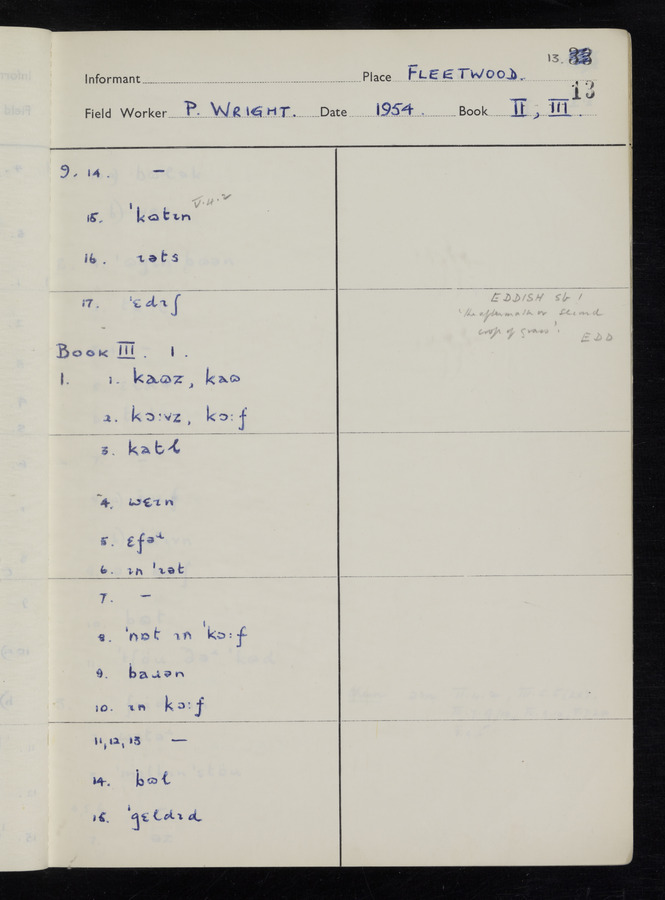 13.
Informant Place FLEETWOOD.
13
Field Worker P. WRIGHT. Date 1954. Book II, III.
9. 14. –
15. ˈkɷtɪn V.H.2
16. ɹəts
17. ˈɛdɪʃ
EDDISH sb 1
'the aftermath or second
crop of grass'. EDD
BOOK III. 1.
1. 1. kaɷz, kaɷ
2. kɔ:vz, kɔ:f
3. katɫ
4. wɛɪn
5. ɛfəɹ
6. ɪn ˈɹət
7. –
8. ˈnɒt ɪn ˈkɔ:f
9. baɹən
10. ɪn kɔ:f
11, 12, 13 –
14. bɷl
15. ˈgɛldɪd